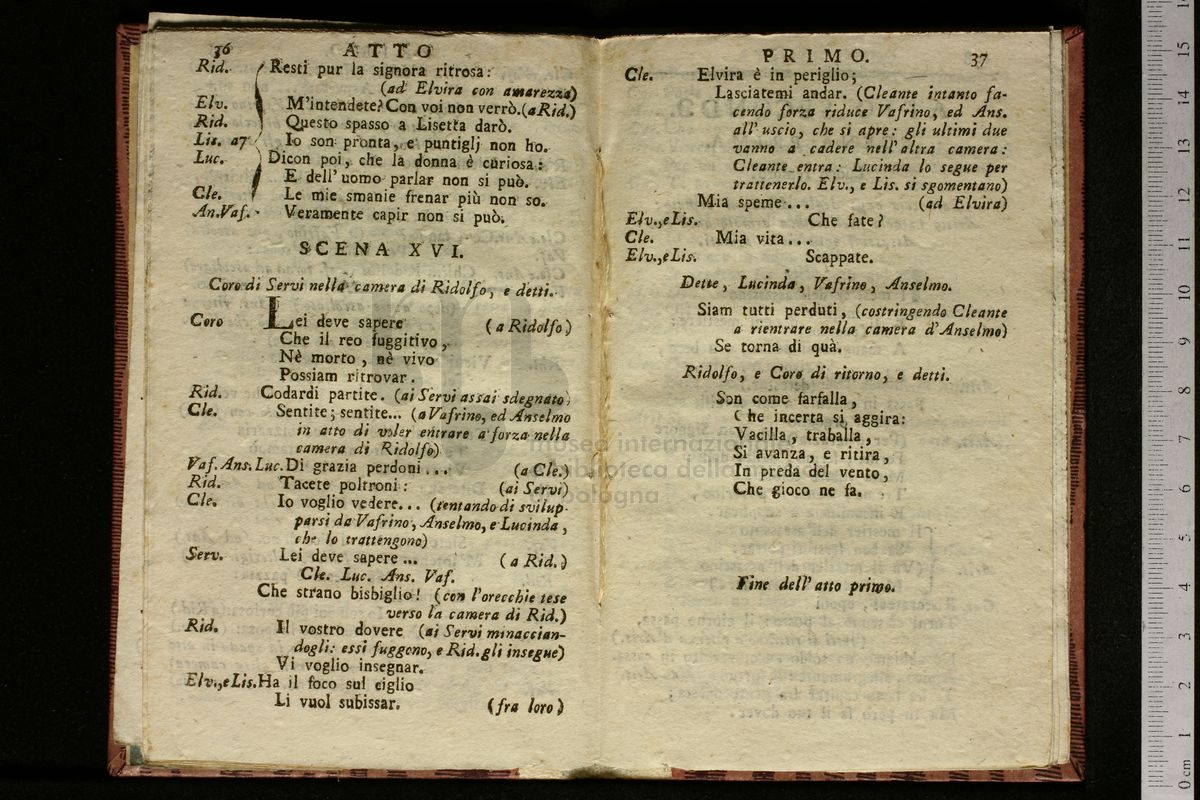 36
ATTO
Rid. Resti pur la signora ritrosa:
(ad Elvira con amarezza)
Elv. M'intendete? Con voi non verrò. (a Rid.)
Rid. Questo spasso a Lisetta darò.
Lis. a7 Io son pronta, e puntiglj non ho.
Luc. Dicon poi, che la donna è curiosa:
E dell'uomo parlar non si può.
Cle. Le mie smanie frenar più non so.
An.Vaf. Veramente capir non si può.
SCENA XVI.
Coro di Servi nella camera di Ridolfo, e detti.
Coro Lei deve sapere (a Ridolfo)
Che il reo fuggitivo,
Nè morto, nè vivo
Possiam ritrovar.
Rid. Codardi partite. (ai Servi assai sdegnato)
Cle. Sentite; sentite... (a Vafrino, ed Anselmo
in atto di voler entrare a forza nella
camera di Ridolfo)
Vaf. Ans. Luc. Di grazia perdoni... (a Cle.)
Rid. Tacete poltroni: (ai Servi)
Cle. Io voglio vedere... (tentando di svilup-
parsi da Vafrino, Anselmo, e Lucinda,
che lo trattengono)
Serv. Lei deve sapere... (a Rid.)
Cle. Luc. Ans. Vaf.
Che strano bisbiglio! (con l'orecchie tese
verso la camera di Rid.)
Rid. Il vostro dovere (ai Servi minaccian-
dogli: essi fuggono, e Rid. gli insegue)
Vi voglio insegnar.
Elv., e Lis. Ha il foco sul ciglio
Li vuol subissar. (fra loro)
PRIMO.
37
Cle. Elvira è in periglio;
Lasciatemi andar. (Cleante intanto fa-
cendo forza riduce Vafrino, ed Ans.
all'uscio, che si apre: gli ultimi due
vanno a cadere nell'altra camera:
Cleante entra: Lucinda lo segue per
trattenerlo. Elv., e Lis. si sgomentano)
Mia speme... (ad Elvira)
Elv., e Lis. Che fate?
Cle. Mia vita...
Elv., e Lis. Scappate.
Dette, Lucinda, Vafrino, Anselmo.
Siam tutti perduti, (costringendo Cleante
a rientrare nella camera d'Anselmo)
Se torna di quà.
Ridolfo, e Coro di ritorno, e detti.
Son come farfalla,
Che incerta si aggira:
Vacilla, traballa,
Si avanza, e ritira,
In preda del vento,
Che gioco ne fa.
Fine dell'atto primo.
museo internazionale
biblioteca della
bologna
0 cm 1 2 3 4 5 6 7 8 9 10 11 12 13 14 15